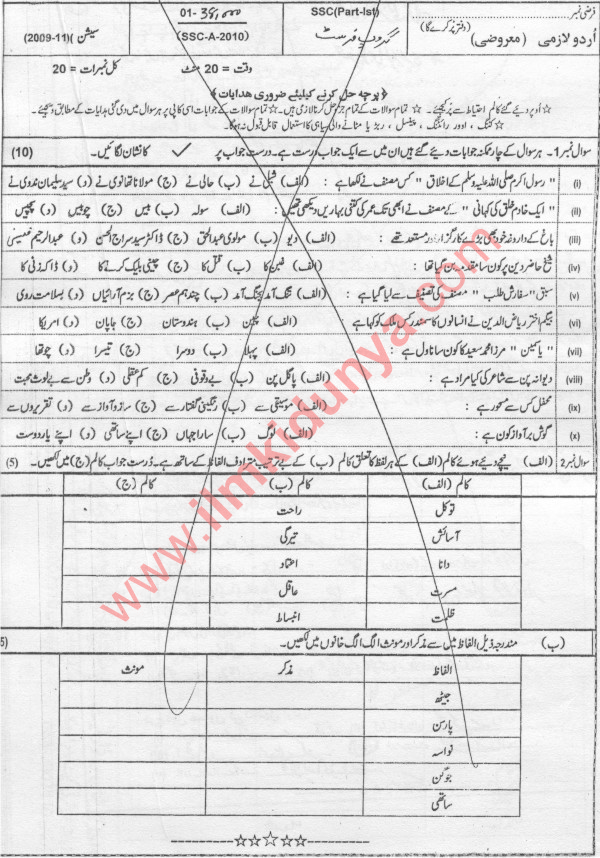 فرضی نمبر
(دفتر پُر کرے گا)
اُردو لازمی (معروضی)
SSC(Part-Ist)
گروپ فرسٹ
01-
(SSC-A-2010)
سیشن (2009-11)
وقت = 20 منٹ
کل نمبرات = 20
﴿ پرچہ حل کرنے کیلئے ضروری ھدایات ﴾
☆ اُوپر دیئے گئے کالم احتیاط سے پُر کیجئے۔ ☆ تمام سوالات کے تمام جز حل کرنا لازمی ہیں۔ ☆ تمام سوالات کے جوابات اسی کاپی پر ہر سوال میں دی گئی ہدایات کے مطابق دیجئے۔
☆ کٹنگ ، اوور رائٹنگ ، پینسل ، ربڑ یا مٹانے والی سیاہی کا استعمال قابل قبول نہ ہو گا۔
سوال نمبر 1۔ ہر سوال کے چار ممکنہ جوابات دیئے گئے ہیں ان میں سے ایک جواب درست ہے۔ درست جواب پر ✓ کا نشان لگائیں۔ (10)
(i) " رسول اکرم صلی اللہ علیہ وسلم کے اخلاق " کس مصنف نے لکھا ہے : (الف) شبلی نے (ب) حالی نے (ج) مولانا تھانوی نے (د) سید سلیمان ندوی نے
(ii) " ایک خادمِ خلق کی کہانی " کے مصنف نے ابھی تک عمر کی کتنی بہاریں دیکھی تھیں: (الف) سولہ (ب) بیس (ج) چوبیس (د) پچیس
(iii) باغ کے داروغہ خود بھی بڑے کارگزار اور مستعد تھے : (الف) دیو (ب) مولوی عبدالحق (ج) ڈاکٹر سید سراج الحسن (د) عبدالرحیم
(iv) شیخ حاضر دین پر کون سا مقدمہ بن گیا تھا : (الف) غبن کا (ب) قتل کا (ج) چینی بلیک کرنے کا (د) ڈاکہ زنی کا
(v) سبق "سفارش طلب" مصنف کی تصنیف سے لیا گیا ہے : (الف) تنگ آمد بجنگ آمد (ب) چند ہم عصر (ج) بزم آرائیاں (د) بسلامت روی
(vi) بیگم اختر ریاض الدین نے انسانوں کا سمندر کس ملک کو کہا ہے : (الف) چین (ب) ہندوستان (ج) جاپان (د) امریکا
(vii) " یاسمین " مرزا محمد سعید کا کون سا ناول ہے : (الف) پہلا (ب) دوسرا (ج) تیسرا (د) چوتھا
(viii) دیوانہ پن سے شاعر کی کیا مراد ہے : (الف) پاگل پن (ب) بے وقوفی (ج) کم عقلی (د) وطن سے بے لوث محبت
(ix) محفل کس سے مسحور ہے : (الف) موسیقی سے (ب) رنگینی گفتار سے (ج) ساز و آواز سے (د) تقریروں سے
(x) گوش بر آواز کون ہے : (الف) لوگ (ب) سارا جہاں (ج) اپنے ساتھی (د) اپنے یار دوست
سوال نمبر 2 (الف) نیچے دیئے ہوئے کالم (الف) کے ہر لفظ کا تعلق کالم (ب) کے بے ترتیب مترادف الفاظ کے ساتھ ہے۔ دُرست جواب کالم (ج) میں لکھیں۔ (5)
کالم (الف) کالم (ب) کالم (ج)
توکل راحت
آسائش تیرگی
دانا اعتماد
مسرت عاقل
ظلمت انبساط
(ب) مندرجہ ذیل الفاظ میں سے مذکر اور مونث الگ الگ خانوں میں لکھیں۔ 5)
الفاظ مذکر مونث
جیٹھ
پارسن
نواسہ
جوگن
ساتھی
----------☆☆☆☆☆----------
www.ilmkidunya.com